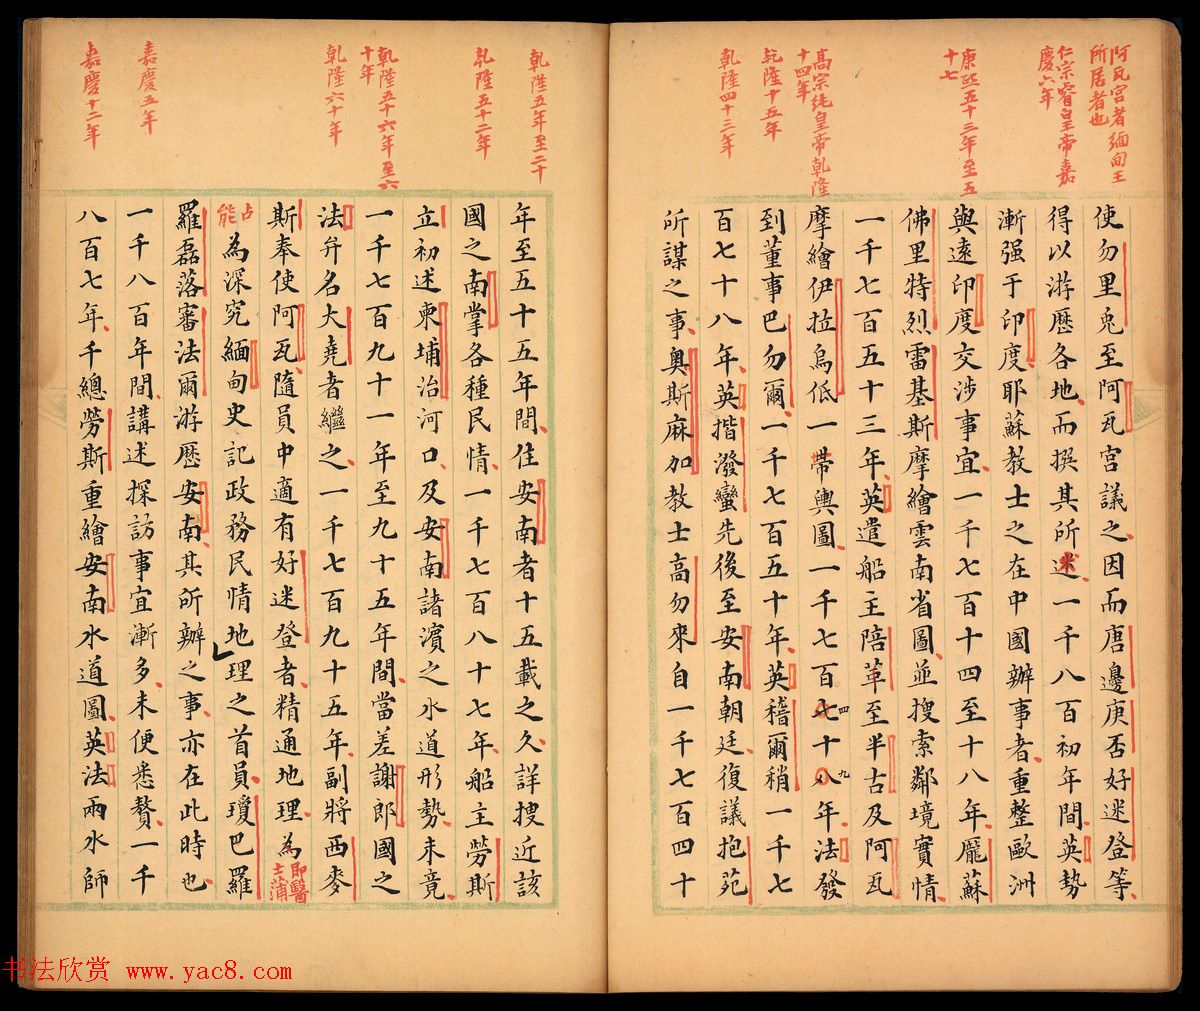 阿瓦宮者緬甸王
所居者也
仁宗睿皇帝嘉
慶六年
康熙五十三年至五
十七
高宗純皇帝乾隆
十四年
乾隆十五年
乾隆四十三年
使勿里兎至阿瓦宮議之因而唐邊庚否好迷登等
得以游歷各地而撰其所述一千八百初年間英勢
漸强于印度耶蘇教士之在中國辦事者重整歐洲
與遠印度交涉事宜一千七百十四至十八年龎蘇
佛里特烈雷基斯摩繪雲南省圖並搜索鄰境實情
一千七百五十三年英遣船主陪革至半古及阿瓦
摩繪伊拉烏低一帶輿圖一千七百七四十八九年法發
到董事巴勿爾一千七百五十年英稽爾稍一千七
百七十八年英揩潑蠻先後至安南朝廷復議抱苑
所謀之事奧斯麻加教士高勿來自一千七百四十
乾隆五年至二十
乾隆五十二年
乾隆五十六年至六
十年
乾隆六十年
嘉慶五年
嘉慶十二年
年至五十五年間住安南者十五載之久詳搜近該
國之南掌各種民情一千七百八十七年船主勞斯
立初述柬埔治河口及安南諸濱之水道形勢未竟
一千七百九十一年至九十五年間當差謝郎國之
法弁名大堯者繼之一千七百九十五年副將西麥
斯奉使阿瓦隨員中適有好迷登者精通地理為即醫士蒲
占能為深究緬甸史記政務民情地理之首員瓊巴羅
羅磊落審法爾游歷安南其所辦之事亦在此時也
一千八百年間講述探訪事宜漸多未便悉贅一千
八百七年千總勞斯重繪安南水道圖英法兩水師
书法欣赏 www.yac8.com